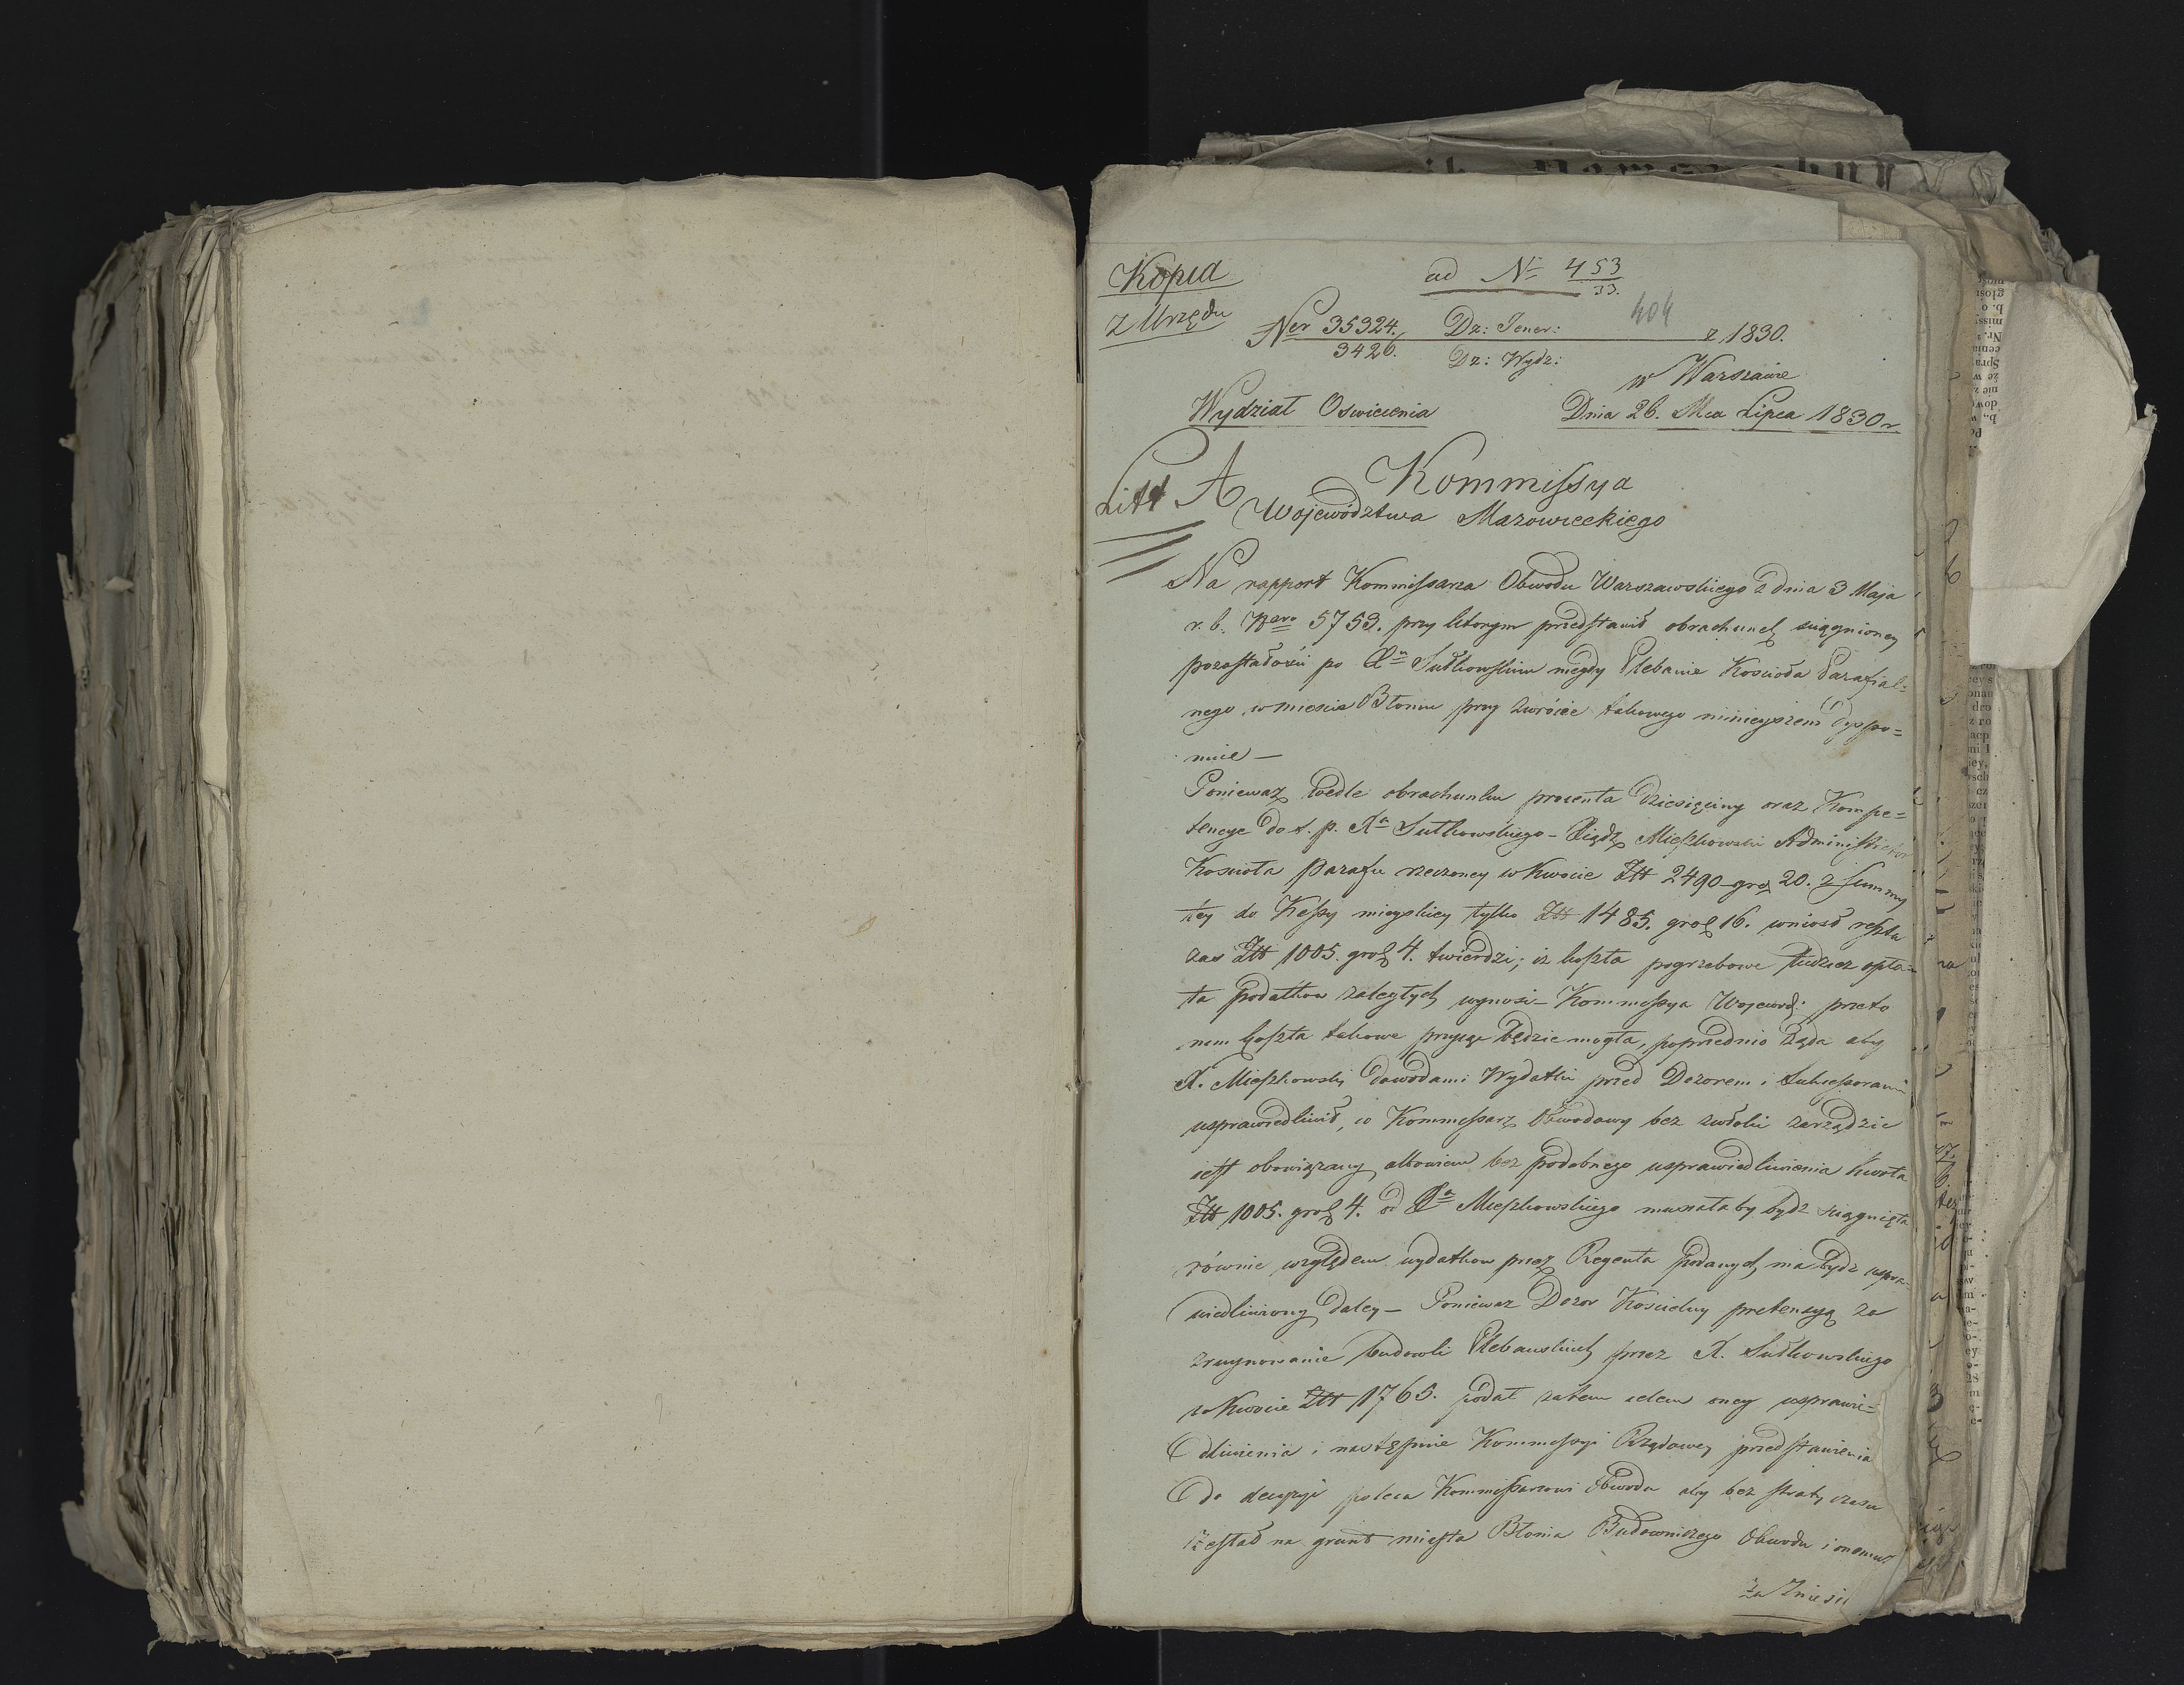 Kopia
z Urzędu
ad Nº 453/33.
404
Ner 35324. Dz: Jener: z 1830.
3426. Dz: Wydz:
w Warszawie
Wydział Oswiecenia
Dnia 26. Mca Lipca 1830 r.
Litt A
Kommissya
Województwa Mazowieckiego
Na rapport Kommissarza Obwodu Warszawskiego z dnia 3 Maja
r. b. Nero 5753. przy ktorym przedstawił obrachunek sciągnioney
pozostałości po Xu Sutkowskim niegdy Plebanie Koscioła Parafial=
nego w miescie Błoniu przy zwrócie takowego ninieyszem dyspo=
nuie —
Ponieważ wedle obrachunku procenta dziesięciny oraz Kompe=
tencye do ś. p. Xa Sutkowskiego — Xiądz Mieszkowski Administrator
Koscioła Parafii rzeczoney w kwocie Złł 2490 gro 20. z summy
tey do Kassy mieyskiey tylko Złł 1485. gro 16. wniosł reszta
zas Złł 1005. gro 4. twierdzi; iż koszta pogrzebowe tudzież opła=
ta podatkow zaległych wynosi — Kommissya Wojewodz: przeto
nim koszta takowe przyjąć będzie mogła, poprzednio żąda aby
X. Mieszkowski dowodami Wydatki przed Dozorem i Sukcessorami
usprawiedliwił, co Kommissarz Obwodowy bez zwłoki zarządzic
iest obowiązany albowiem bez podobnego usprawiedliwienia kwota
Złł 1005. gro 4. od Xa Mieszkowskiego musiałaby bydz sciągnięta
równie względem wydatkow przez Regenta podanych ma bydz uspra=
wiedliwiony daley — Ponieważ Dozor Koscielny pretensyą za
zruynowanie budowli Plebanskich przez X. Sutkowskiego
w kwocie Złł 1765. podał zatem celem oney usprawie=
dliwienia i nastepnie Kommissyi Rządowey przedstawienia
do decyzyi poleca Kommissarzowi Obwodu aby bez straty czasu
zesłał na grunt miasta Błonia Budowniczego Obwodu i onemuż
za Zniesie